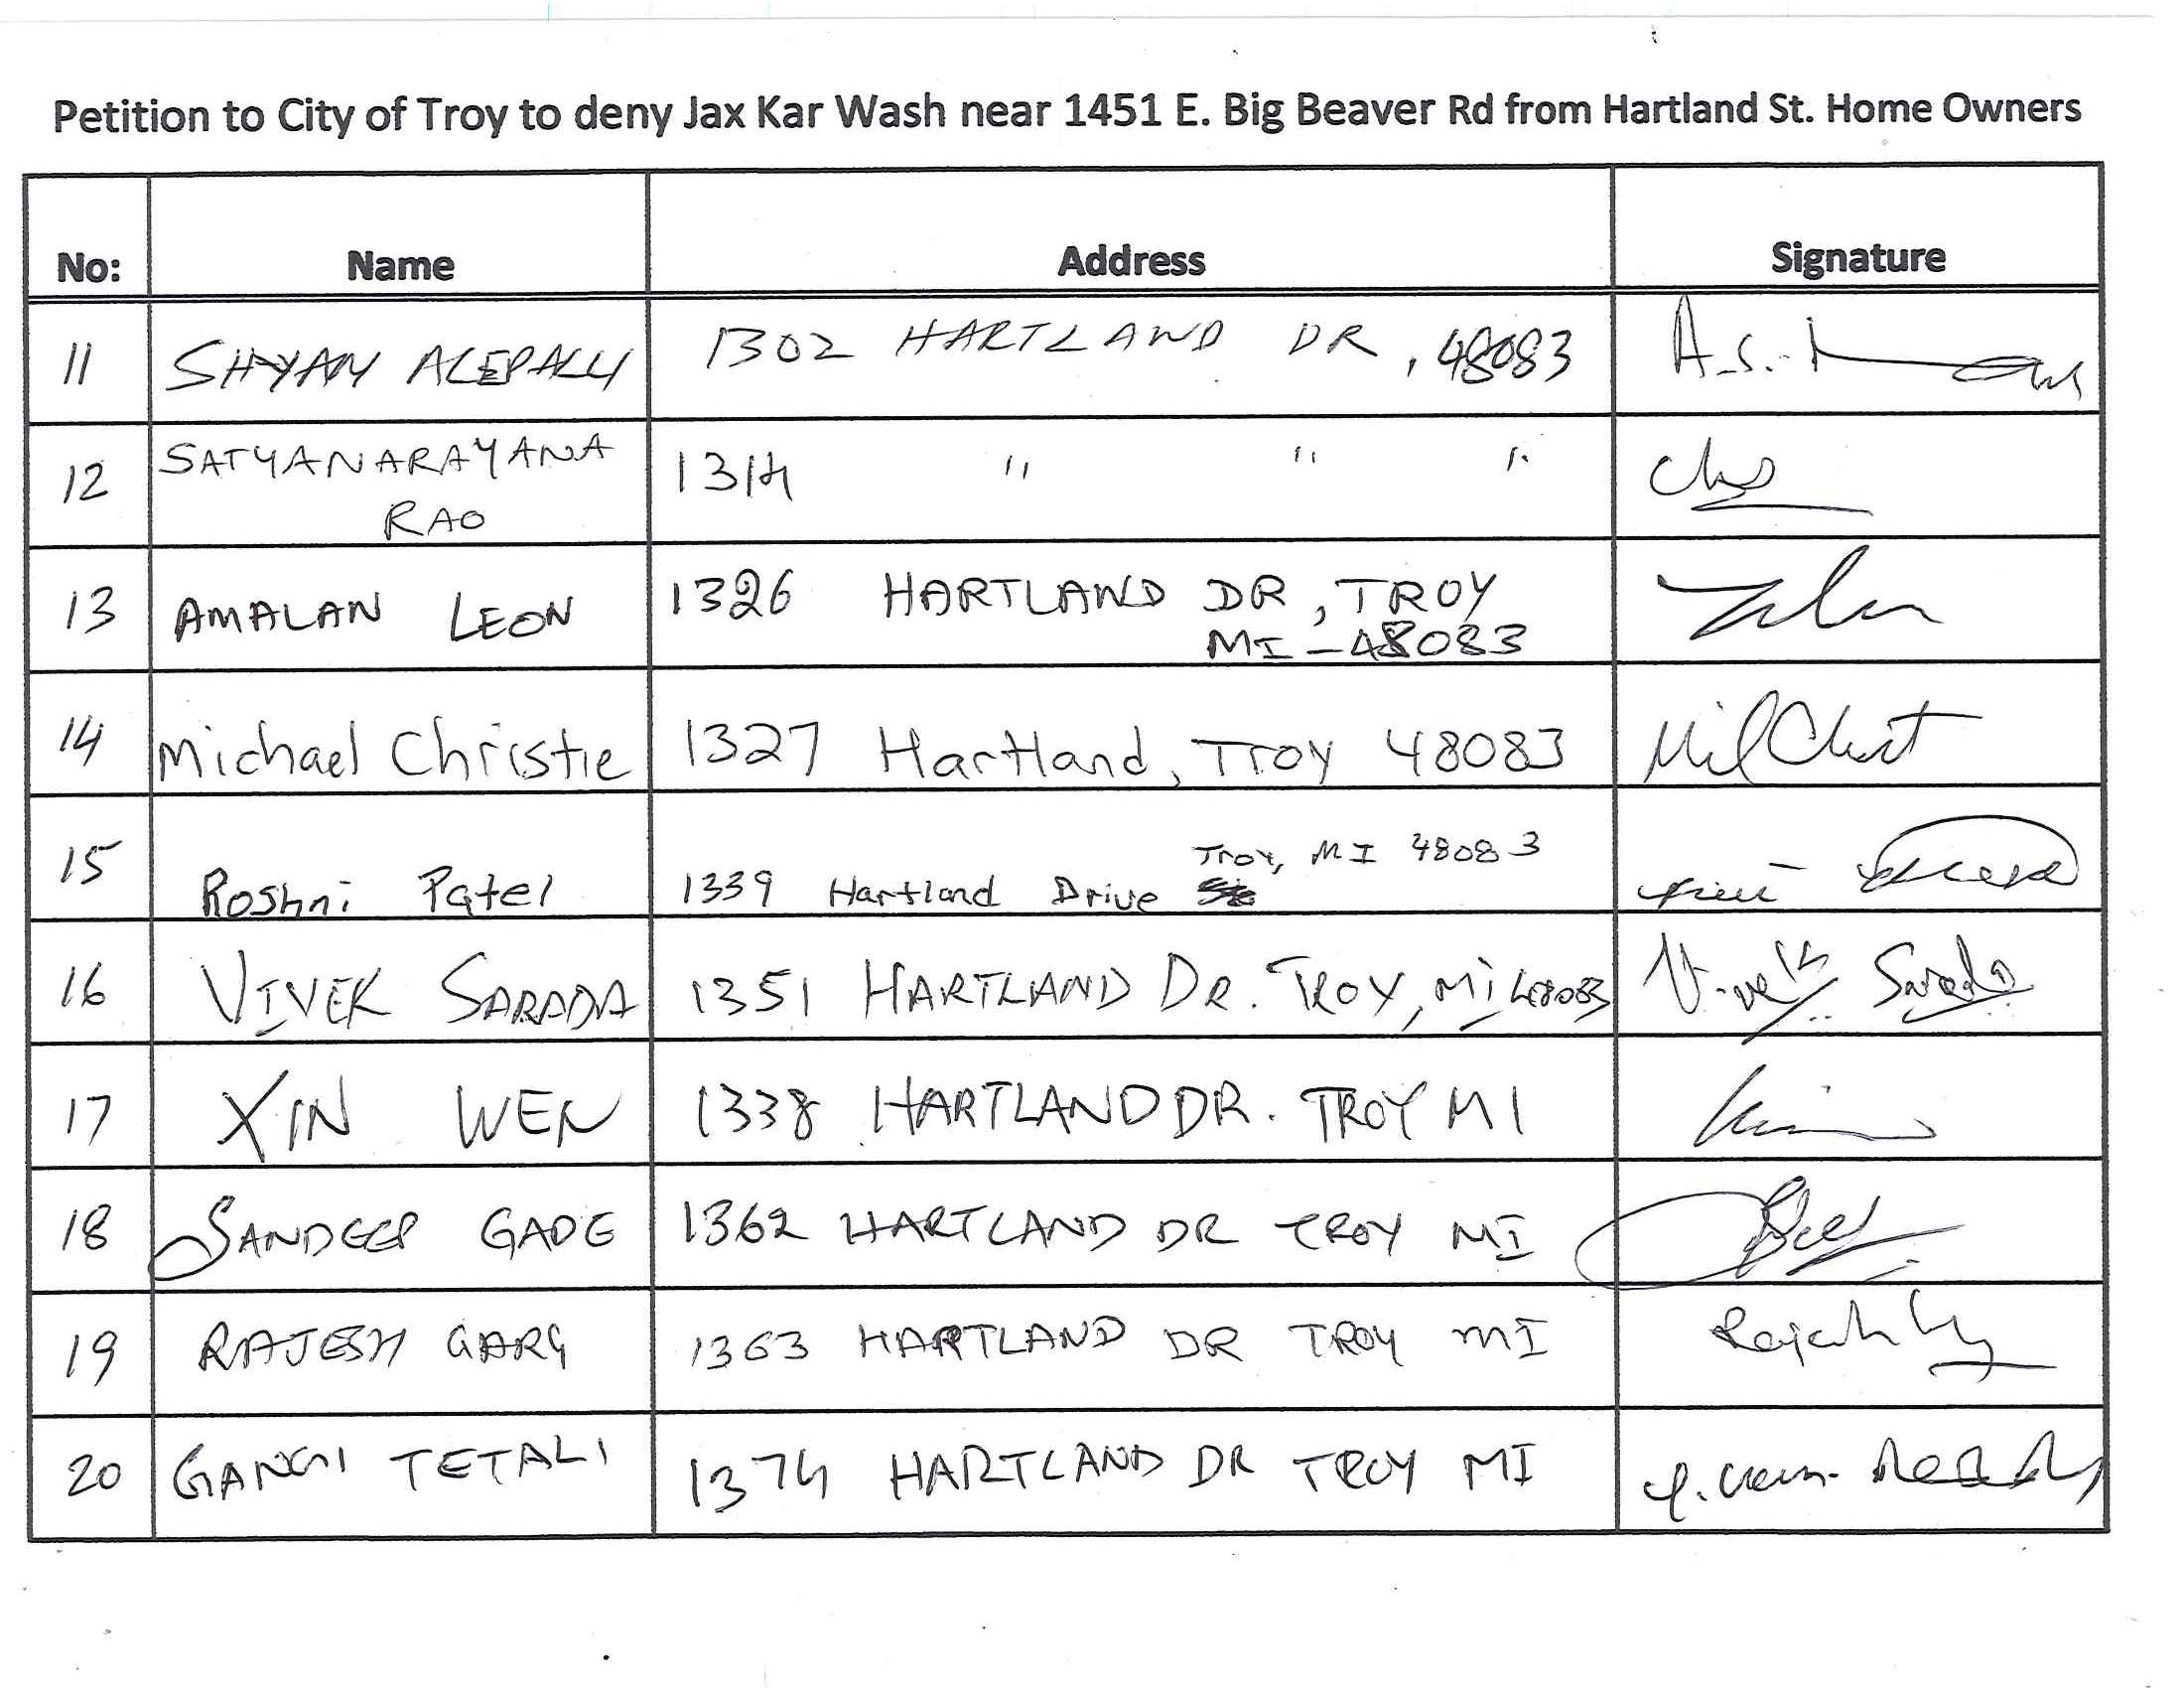 Petition to City of Troy to deny Jax Kar Wash near 1451 E. Big Beaver Rd from Hartland St. Home Owners
No: Name Address Signature
11 SHYAM ALEPALLY 1302 HARTLAND DR, 48083 A.S.
12 SATYANARAYANA 1314 " " "
RAO
13 AMALAN LEON 1326 HARTLAND DR, TROY
MI - 48083
14 Michael Christie 1327 Hartland, Troy 48083
Troy, MI 48083
15 Roshni Patel 1339 Hartland Drive
16 VIVEK SARADA 1351 HARTLAND DR. TROY, Mi 48083 Vivek Sarada
17 XIN WEN 1338 HARTLAND DR. TROY MI
18 SANDEEP GADE 1362 HARTLAND DR TROY MI
19 RAJESH GARG 1363 HARTLAND DR TROY MI Rajesh
20 GANGI TETALI 1374 HARTLAND DR TROY MI